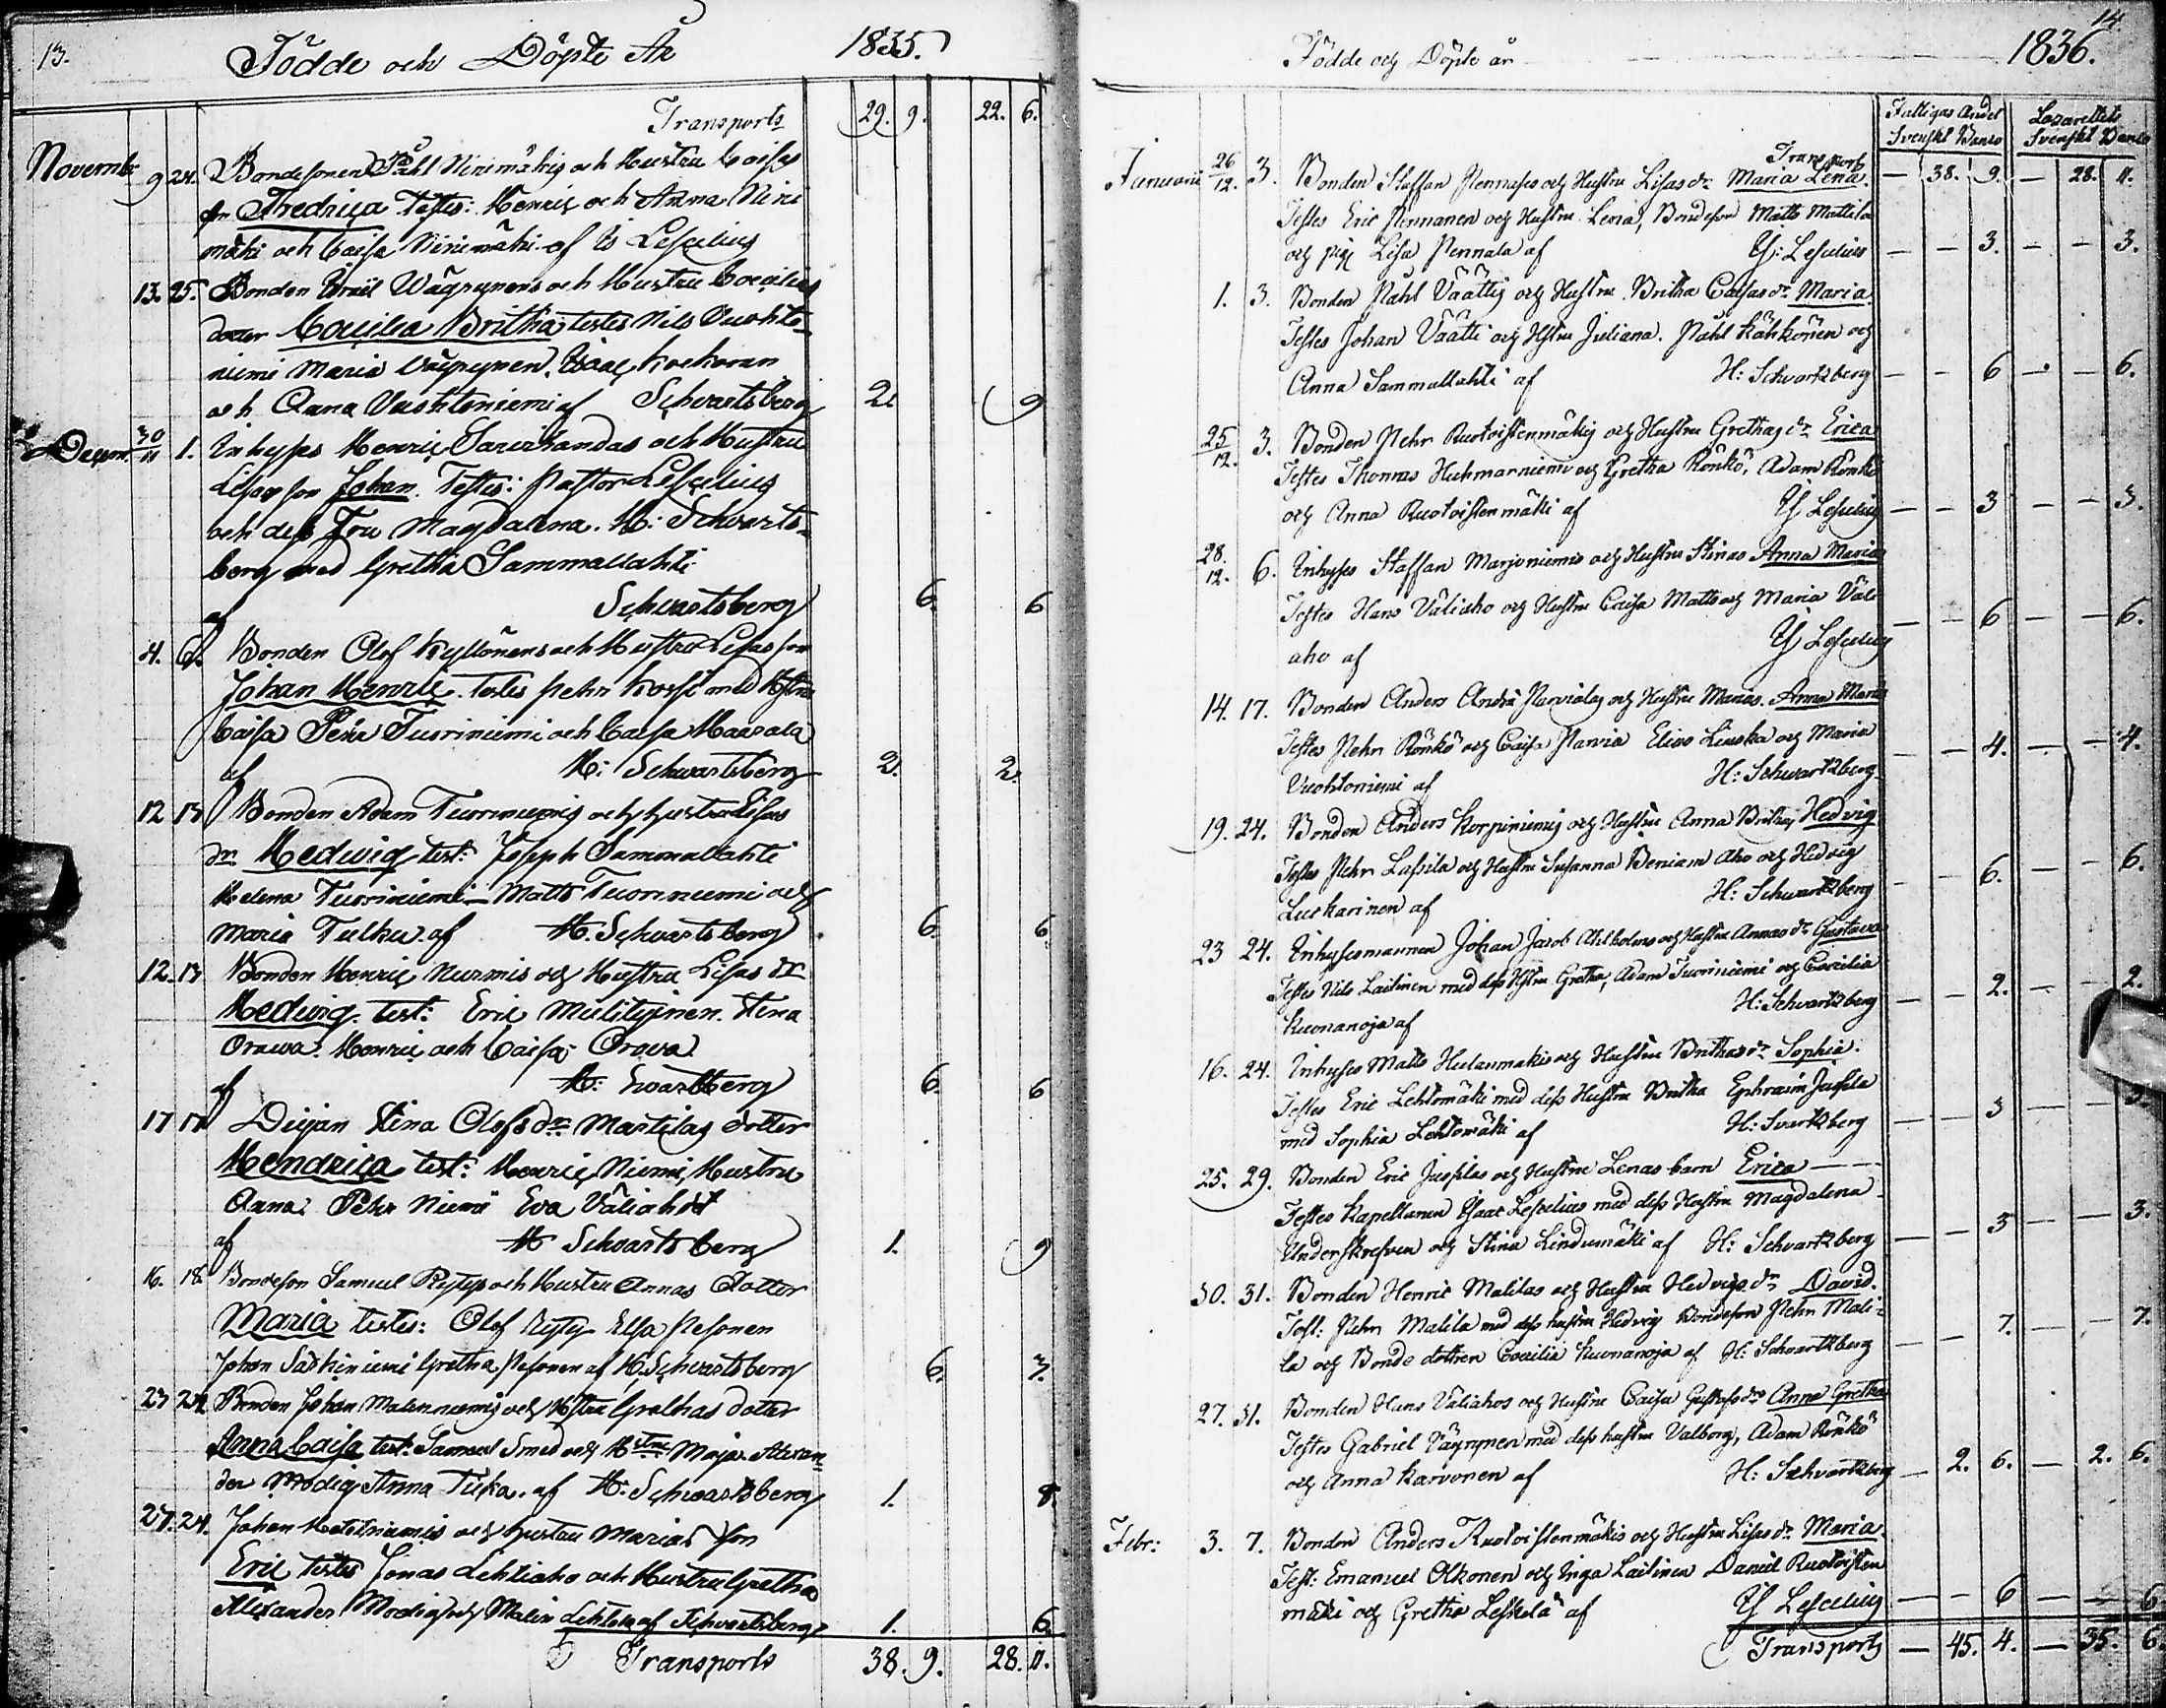 13.
Födde och Döpte År 1835.
Transports 29. 9. 22. 6.
Novembr 9 24. Bondesonen Påhl Niñimäkis och Hustru Caisas
dr Fredrica Testes: Henric och Anna Nini
mäki och Caisa Ninimäki af Is Lescelius
13. 25. Bonden Israel Wäyrynens och Hustru Cecilias
dotter Cecilia Britha testes Nils Vuohto-
niemi Maria Väyrynen, Isaac
och Anna Vuohtoniemi af Schvartsberg 2. 9
Decem. 30/11 1. Inhyses Henric och Hustru
Lisas son Johan. Testes: Pastor Lescelius
och dess Fru Magdalena. H: Schvarts-
berg med Gretha Sammallahti
af Schvartsberg 6. 6
4. 6. Bonden Olof Kyllönens och Hustru Lisas son
Johan Henric. Testes Pehr med Hstru
Caisa Pehr Tuoriniemi och Caisa
af H: Schvartsberg 2. 2.
12 13 Bonden Adam Tuoriniemis och Hustru Lisas
dr Hedwig test: Joseph Sammallahti
Helena Tuoriniemi Matts Tuoriniemi och
Maria Tulku af H. Schvartsberg 6. 6
12. 13 Bonden Henric Nurmis och Hustru Lisas dr
Hedwig. test: Eric Stina
Orawa. Henric och Caisa Orava
af H: Svartberg 6. 6
17 17 Pigan Stina Olofs dr Martilas dotter
Hendrica test: Henric Niemi, Hustru
Anna Pehr Niemi Eva Väliaho
af H Schvartsberg 1. 9
16. 18. Bondeson Samuel Rytys och Hustru Annas Dotter
Maria testes: Olof Ryty Elsa Pesonen
Johan Särkiniemi Gretha Pesonen af H. Schvartsberg 6. 3.
23 24 Bonden Johan Malinniemis och Hstru Grethas dotter
Anna Caisa test: Samuel Smed och Hstru Maja. Alexan-
der Modig Anna af H: Schvartsberg 1. 8.
27. 24. Johan och Hustru Marias son
Eric testes Jonas Lehtiaho och Hustru Gretha
Alexander Modig och Malin Lehtola af Schvartsberg 1. 6.
Transports 38. 9. 28. 11.
14.
Födde och Döpte år 1836.
Fattigas Andel Lazarettets
Svenskt Banco Svenskt Banco
Transport
Januarii 26/12. 3. Bonden Staffan Pennases och Hustru Lisas dr Maria Lena. — 38. 9. — 28. 11.
Testes Eric Pennanen och Hustru Lena, Bondeson Matts Mattila
och pig Lisa Pennala af Is: Lescelius — — 3. — — 3.
1. 3. Bonden Påhl Väättis och Hustru Britha Caisas dr Maria
Testes Johan Väätti och Hstru Juliana. Påhl Kähkönen och
Anna Sammallahti af H: Schvartzberg — — 6 — — 6.
25/12. 3. Bonden Pehr Ruotoistenmäkis och Hustru Grethas dr Erica
Testes Thomas Huhmarniemi och Gretha Rönkö, Adam Rönkö
och Anna Ruotoistenmäki af Is Lescelius — — 3 — — 3.
28/12. 6. Inhyses Staffan Marjoniemis och Hustru Stinas Anna Maria
Testes Hans Väliaho och Hustru Caisa Matts och Maria Väli
aho af Is Lescelius — — 6 — — 6.
14. 17. Bonden Anders Andrs Parvialas och Hustru Marias. Anna Maria
Testes Pehr Rönkö och Caisa Parvia Elias Liuska och Maria
Vuohtoniemi af H: Schwartzberg — — 4. — — 4.
19. 24. Bonden Anders Korpiniemis och Hustru Anna Brithas Hedvig
Testes Pehr Lassila och Hustru Susanna Beniam Aho och Hedvig
Luckarinen af H: Schwartzberg — — 6. — — 6.
23 24. Inhysesmannen Johan Jacob Ahlholms och Hustru Annas dr Gustava
Testes Nils Laitinen med dess Hstru Gretha, Adam Tuoriniemi och Cecilia
Kuonanoja af H: Schvartzberg — — 2. — — 2.
16. 24. Inhyses Matts Heilanmäkis och Hustru Brithas dr Sophia.
Testes Eric Lehtomäki med dess Hustru Britha Ephraim Jussila
med Sophia Lehtomäki af H: Svartzberg — — 3 — — 3
25. 29. Bonden Eric Jussilas och Hustru Lenas barn Erica —
Testes Kapellanen Isaac Lescelius med dess Hustru Magdalena
Underskrefven och Stina Lindumäki af H: Schvartzberg — — 3 — — 3.
30. 31. Bonden Henric Malilas och Hustru Hedvigs dr David.
Test: Pehr Malila med dess hustru Hedvig Bondeson Pehr Mali-
la och Bonde dottren Cecilia Kuonanoja af H: Schvartzberg — — 7. — — 7.
27. 31. Bonden Hans Väliahos och Hustru Caisa Gustafs dr Anna Gretha
Testes Gabriel Väyrynen med dess hustru Valborg, Adam Rönkö
och Anna Karvonen af H: Schvartzberg — 2. 6. — 2. 6.
Febr: 3. 7. Bonden Anders Ruotoistenmäkis och Hustru Lisas dr Maria.
Test: Emanuel Olkonen och Inga Laitinen Daniel Ruotoisten
mäki och Gretha Leskelä af Is Lescelius — — 6 — — 6
Transports — 45. 4. — 35. 6.